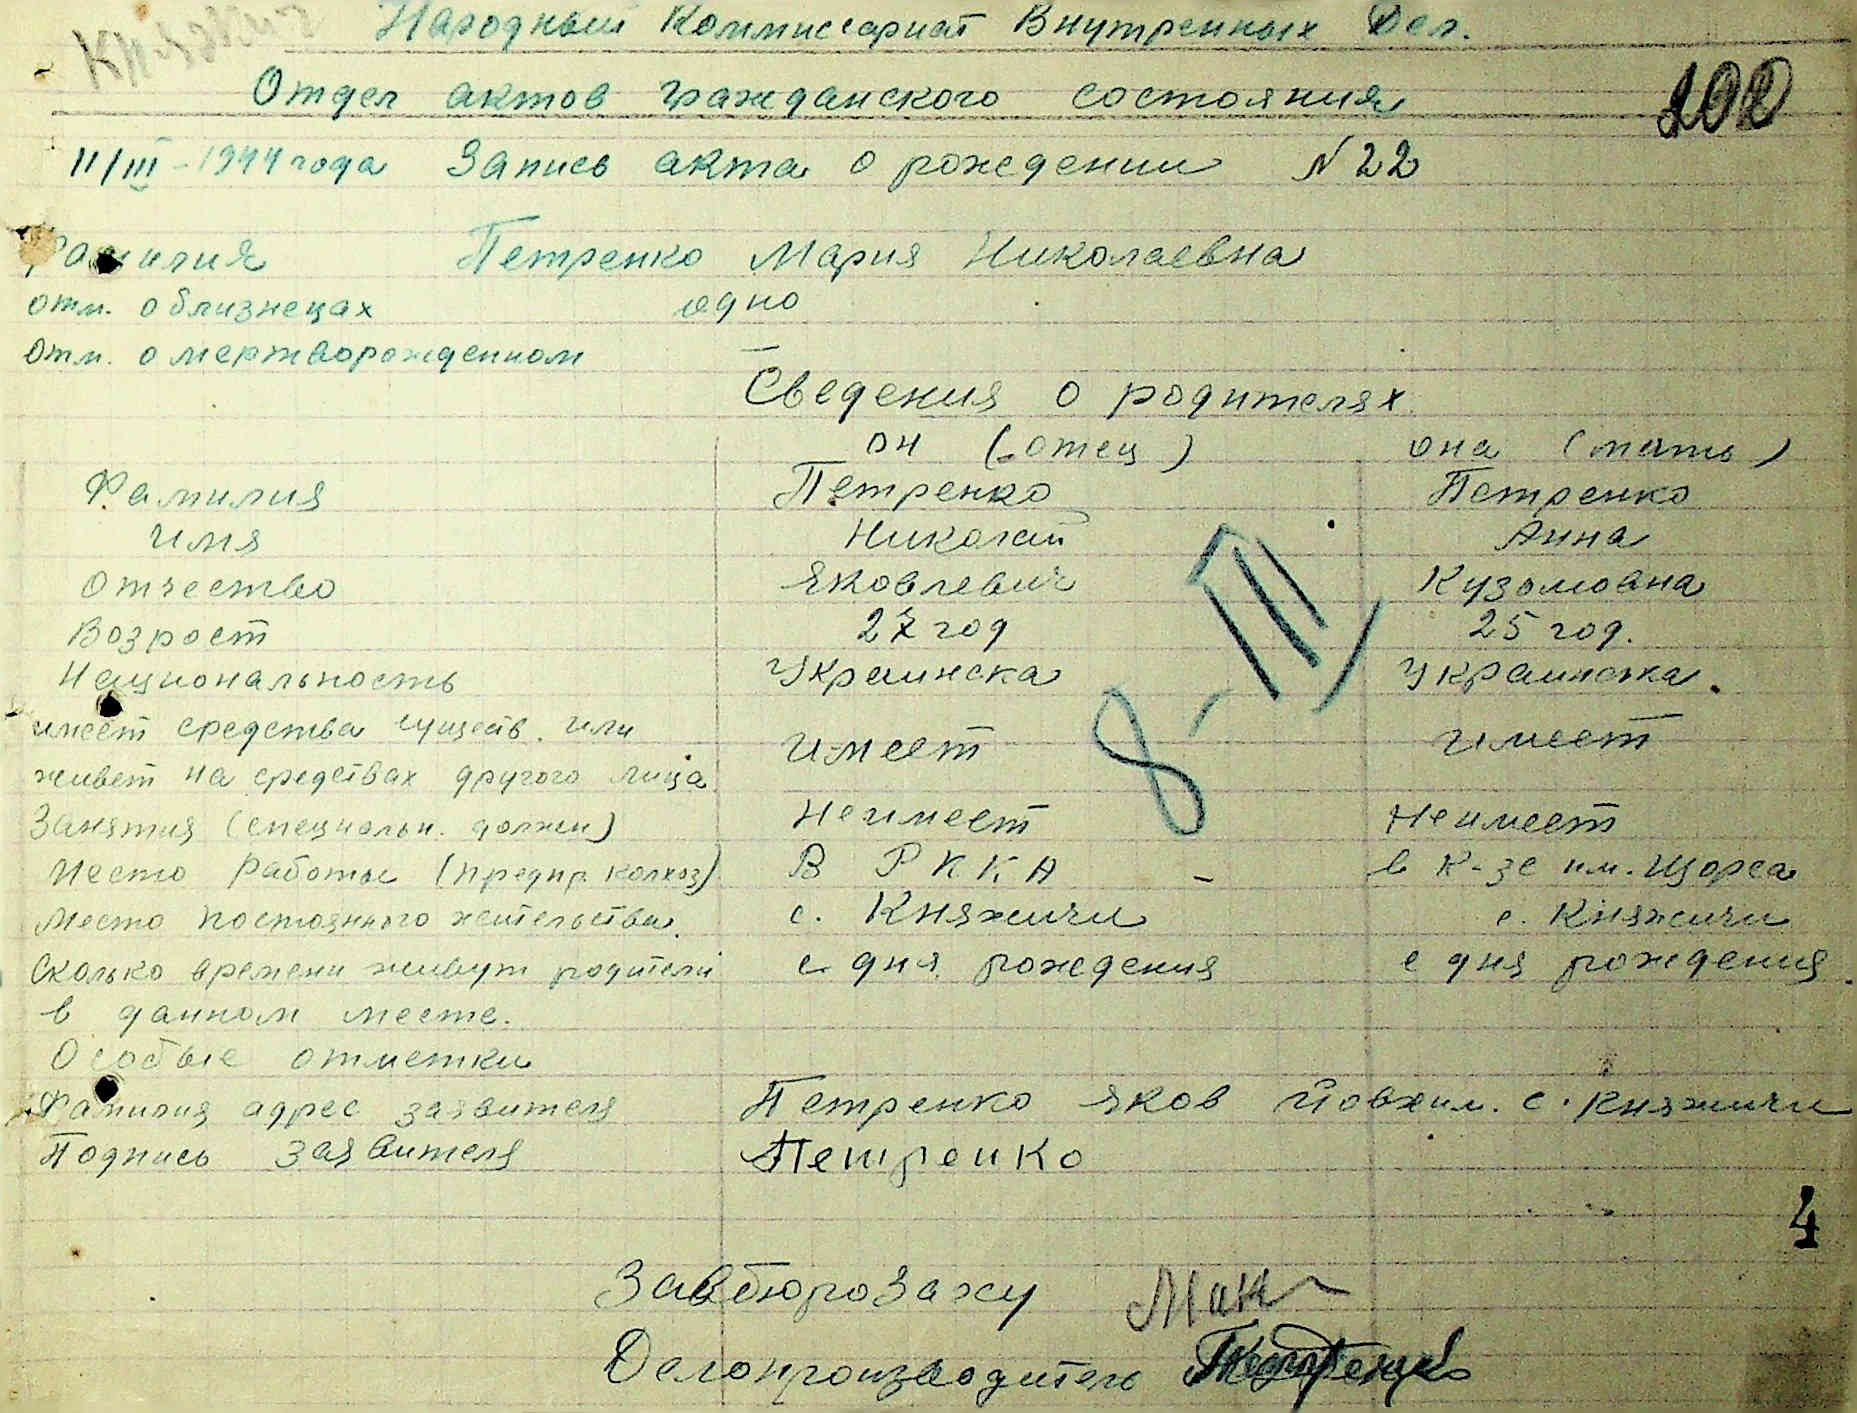 Княжичі
Народный Коммиссариат Внутренных Дел.
Отдел актов гражданского состояния
11/III - 1944 года Запись акта о рождении N 22
Фамилия Петренко Мария Николаевна
отм. о близнецах одно
отм. о мертворожденном —
Сведения о родителях
он (отец) она (мать)
Фамилия Петренко Петренко
имя Николай Анна
Отчество Яковлевич Кузомовна
Возрост 27 год 25 год.
Национальность Украинска Украинска.
имеет средства сущеcтв. или
живет на средствах другого лица имеет имеет
8-III
Занятия (специальн. должн) Неимеет Неимеет
Место работы (предпр колхоз) В РККА - в к-зе им. Щорса
Место постоянного жительства. с. Княжичи с. Княжичи
Сколько времени живут родители с дня рождения с дня рождения.
в данном месте.
Особые отметки
Фамилия адрес заявителя Петренко Яков Йовхим. с. Княжичи
Подпись заявителя Петренко
4
Завбюро Загсу
Делопроизводитель Петренко